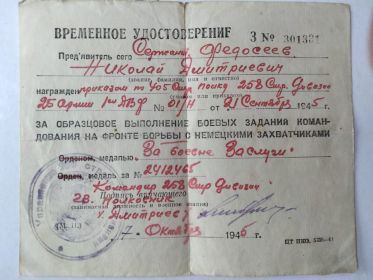 ВРЕМЕННОЕ УДОСТОВЕРЕНИЕ З № 301331
Пред'явитель сего Сержант Федосеев
Николай Дмитриевич
(звание, фамилия, имя и отчество)
награжден приказом по 405 Стр. полку 258 Стр. Дивизии
25 Армии 1го ДВФ № 01/Н от 21 Сентября 1945 г.
ЗА ОБРАЗЦОВОЕ ВЫПОЛНЕНИЕ БОЕВЫХ ЗАДАНИЙ КОМАН-
ДОВАНИЯ НА ФРОНТЕ БОРЬБЫ С НЕМЕЦКИМИ ЗАХВАТЧИКАМИ
Орденом, медалью „За боевые Заслуги"
Орден, медаль за № 2412465
Командир 258 Стр Дивизии
Подпись вручающего
Гв. Полковник
/Дмитриев/
7 Октября 1945 г.